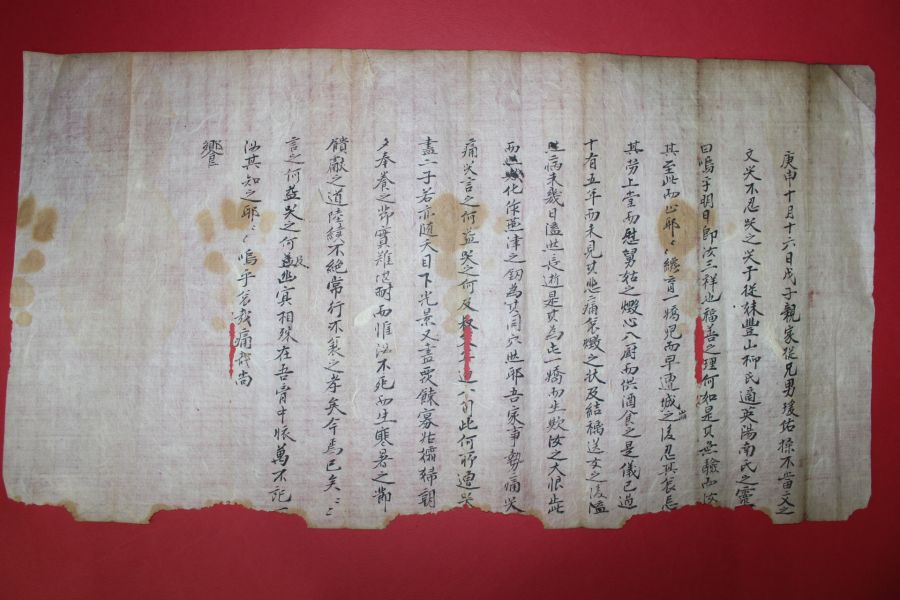 庚申十月十六日戊子親家從兄男瑗佑操不當文之
文哭不忍哭之哭于從妹豊山柳氏適英陽南氏之靈
曰嗚乎明日卽汝三祥也福善之理何如是其無驗而汝
其至此而止耶〻緫育一嬌兒而早連城之後忍與長
其勞上堂而慰舅姑之心入廚而供酒食之是儀已過
十有五年而未見其悲痛之狀及結褵送女之後
病未幾日溘世長逝是其為此一嬌而生歟汝之大恨此
而化作延津之釰為其同穴世耶吾家事勢痛哭
痛哭言之何益哭之何及 此何所適矣
盡二子若亦隨天目下光景又盡寡姑孀婦朝
夕奉養之節實難堪耐而惟汝不死而生寒暑之節
饋獻之道陸續不絶常行不衰之孝矣今焉已矣〻〻
言之何益哭之何及幽冥相殊在吾胷中悵萬不記一
汝其知之耶〻嗚乎哀哉痛哉尚
饗